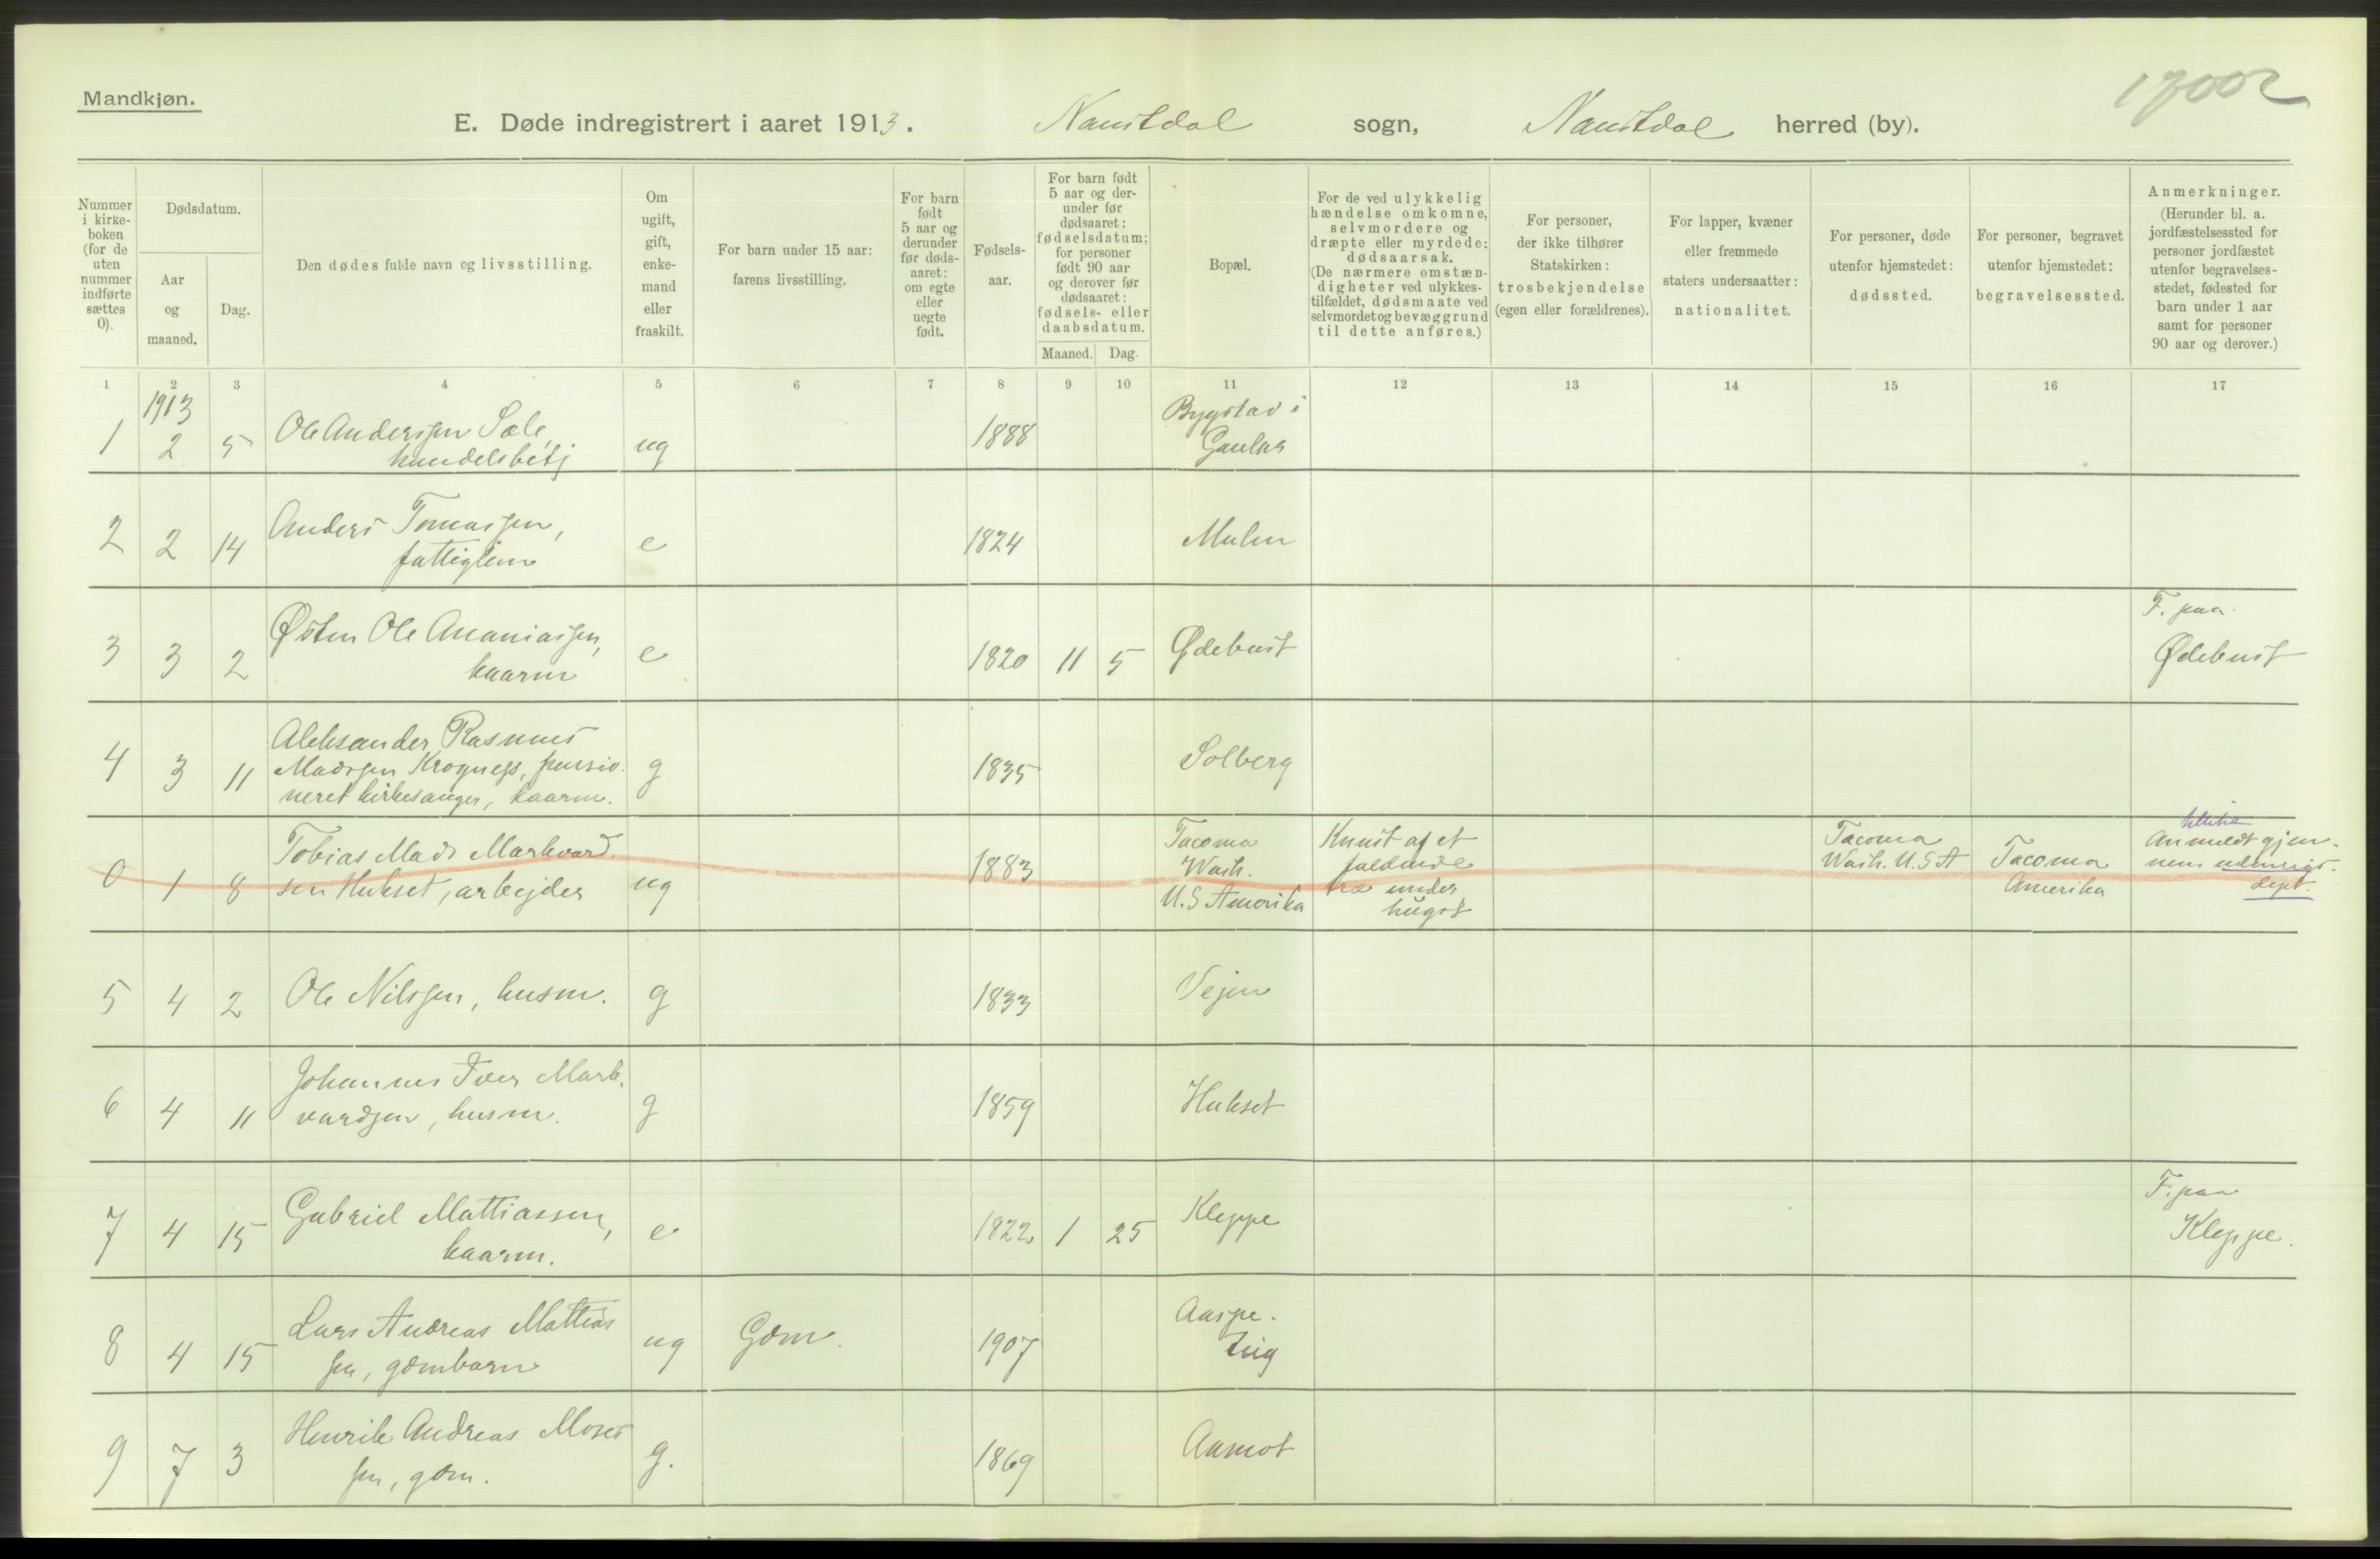 Mandkjøn.
17002
E. Døde indregistrert i aaret 1913. Naustdal sogn, Naustdal herred (by).
Nummer i kirke-boken (for de uten nummer indførte sættes 0).
Dødsdatum.
Aar og maaned.
Dag.
Den dødes fulde navn og livsstilling.
Om ugift, gift, enke-mand eller fraskilt.
For barn under 15 aar: farens livsstilling.
For barn født 5 aar og derunder før døds-aaret: om egte eller uegte født.
Fødsels-aar.
For barn født 5 aar og der-under før dødsaaret: fødselsdatum; for personer født 90 aar og derover før dødsaaret: fødsels- eller daabsdatum.
Maaned. Dag.
Bopæl.
For de ved ulykkelig hændelse omkomne, selvmordere og dræpte eller myrdede: dødsaarsak. (De nærmere omstæn-digheter ved ulykkes-tilfældet, dødsmaate ved selvmordet og bevæggrund til dette anføres.)
For personer, der ikke tilhører Statskirken: trosbekjendelse (egen eller forældrenes).
For lapper, kvæner eller fremmede staters undersaatter: nationalitet.
For personer, døde utenfor hjemstedet: dødssted.
For personer, begravet utenfor hjemstedet: begravelsessted.
Anmerkninger. (Herunder bl. a. jordfæstelsessted for personer jordfæstet utenfor begravelses-stedet, fødested for barn under 1 aar samt for personer 90 aar og derover.)
1 2 3 4 5 6 7 8 9 10 11 12 13 14 15 16 17
1913
1 2 5 Ole Anderssen Sæle, ug 1888 Bygstad i
handelsbetj Gaular
2 2 14 Anders Tomassen, e 1824 Mulen
fattiglem
3 3 2 Østen Ole Ananiassen, e 1820 11 5 Ødebust F. paa
kaarm Ødebust
4 3 11 Aleksander Rasmus g 1835 Solberg
Madssen Krogness, pensio-
neret kirkesanger, kaarm.
0 1 8 Tobias Mads Markvard ug 1883 Tacoma Knust af et Tacoma Tacoma Anmeldt gjen-
sen Hukset, arbejder Wash. faldende Wash. U.S.A Amerika nem udenrigs-
U.S Amerika træ under dept.
hugst
5 4 2 Ole Nilssen, husm. g 1833 Vejen
6 4 11 Johannes Iver Mark- g 1859 Hukset
vardsen, husm.
7 4 15 Gabriel Mattiassen, e 1822 1 25 Kleppe F. paa
kaarm. Kleppe.
8 4 15 Lars Andreas Mattias ug Gdm. 1907 Aaspe-
sen, gdmbarn teig
9 7 3 Henrik Andreas Moses g. 1869 Aamot
sen, gdm.